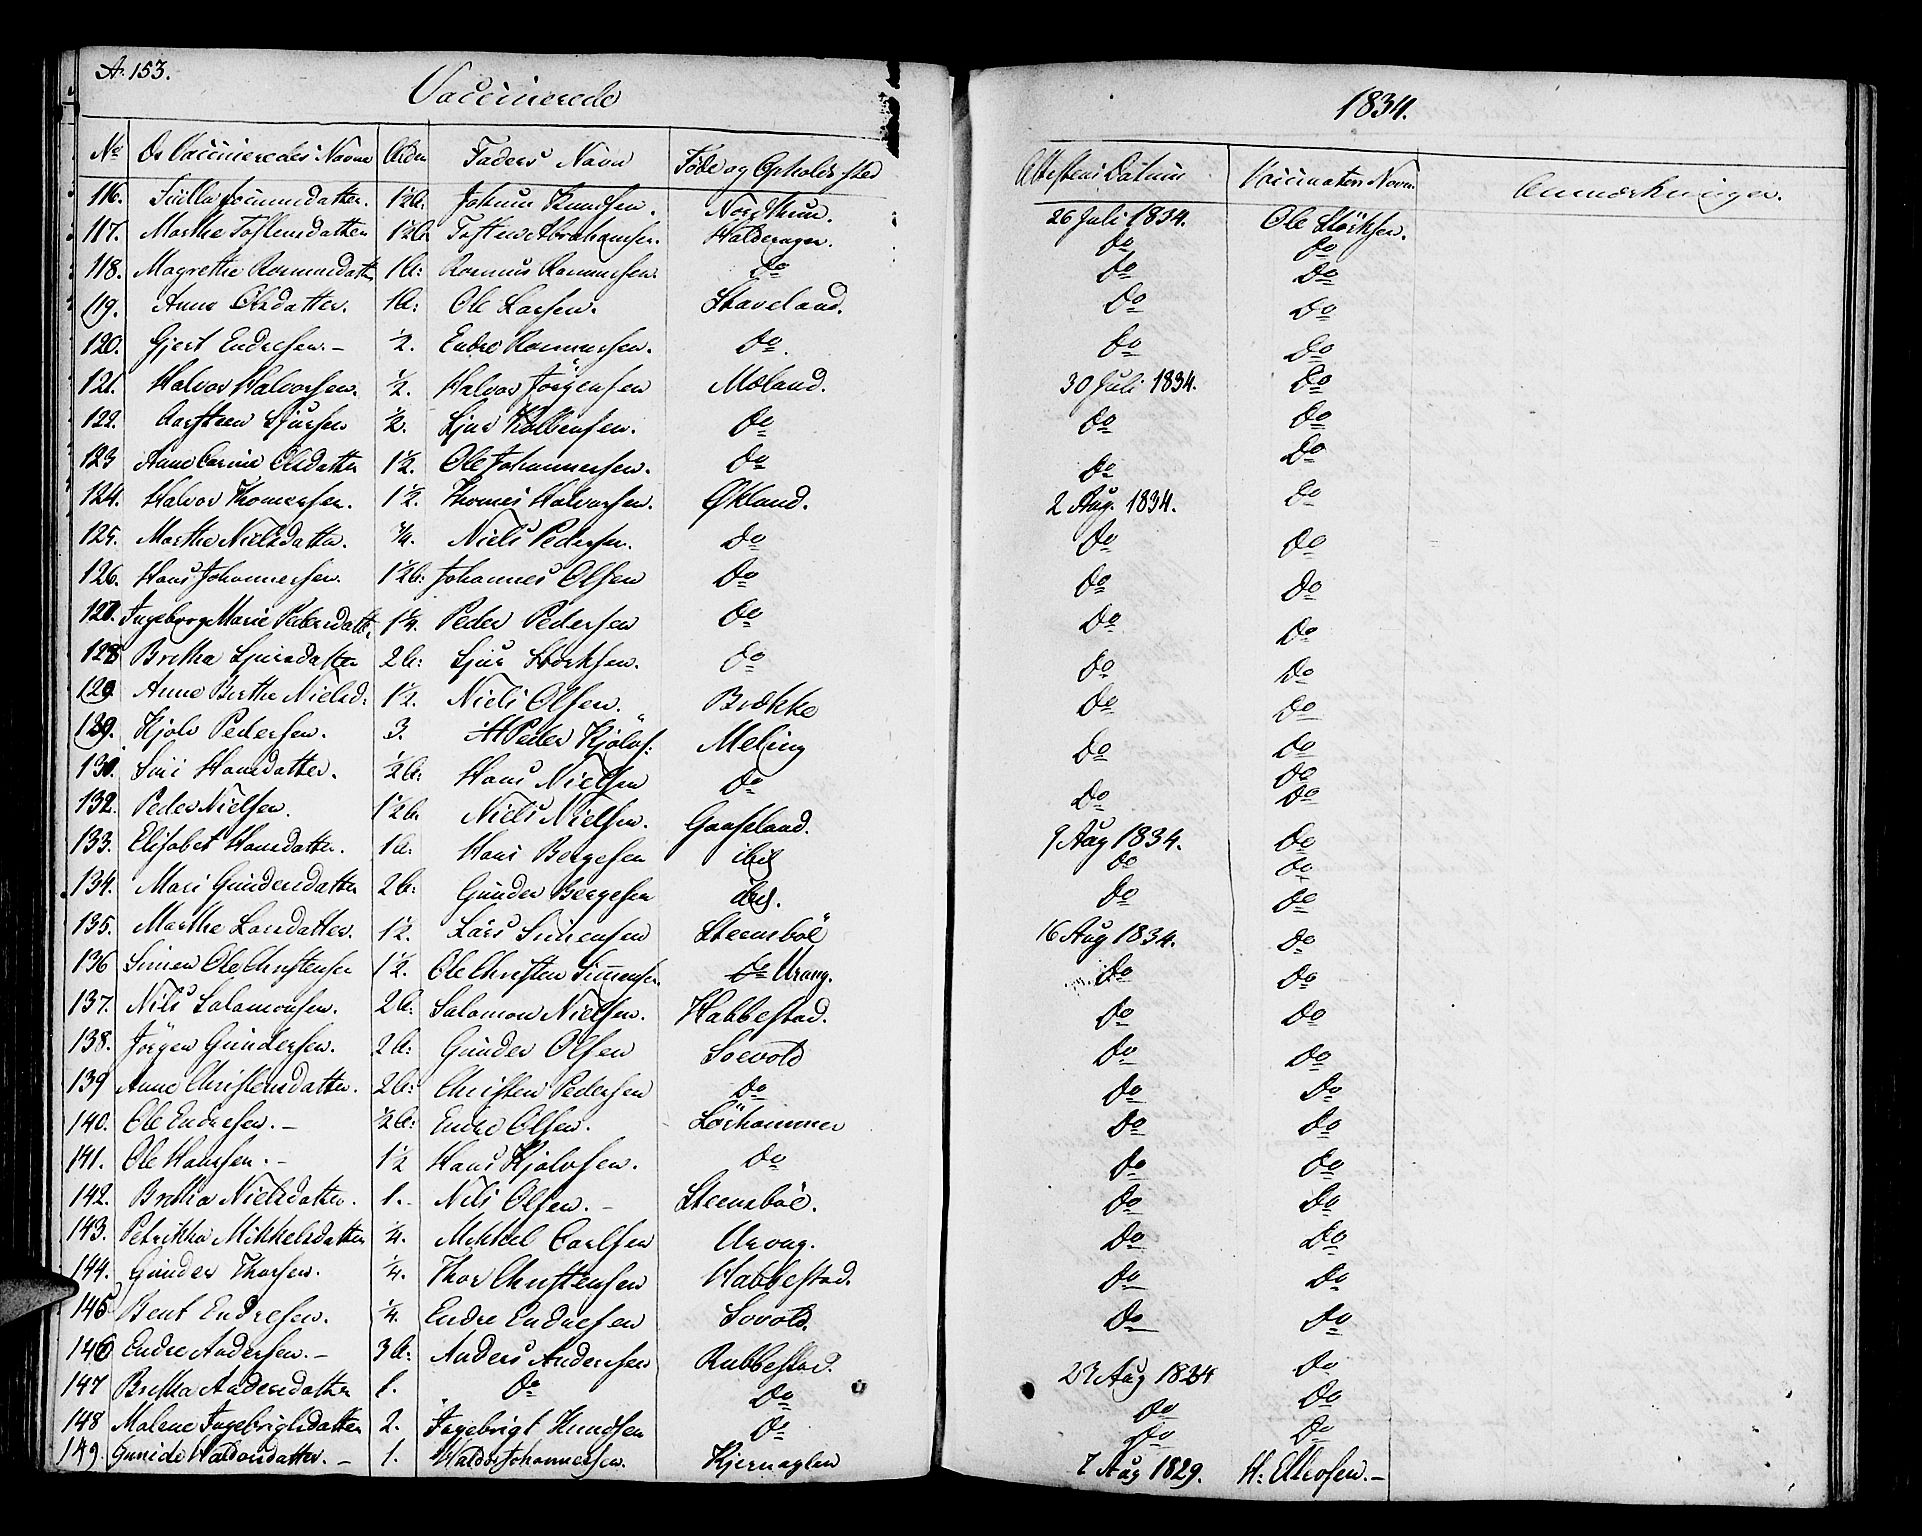 A. 153.
Vaccinerede 1834.
No De Vaccineredes Navne Alder Faders Navn Føde og Opholds sted Attestens Datum Vaccinators Navn Anmærkninger.
116. Johnsdatter. 1/2 A: John Knudsen. 26 Juli 1834. Ole Størksen.
117. Marthe Tostensdatter 1/2 A: Tosten Abrahamsen. Halderager. Do Do
118. Magrethe Rasmusdatt. 1 A: Rasmus Rasmussen. Do Do Do
119. Anne Olsdatter. 1 A: Ole Larsen. Staveland. Do Do
120. Gjert Endresen. – 1/2. Endre Rasmussen. Do. Do Do
121. Halvor Halvorsen. 1/2. Halvor Jørgensen Mæland. 30 Juli 1834. Do
122. Aarsteen Sjursen 1/2. Sjur Do Do Do
123 Anne Carine Olsdatter 1 1/2. Ole Johannessen. Do Do Do
124. Halvor Thomessen. 1 1/2. Thomes Halvorsen. Økland. 2 Aug. 1834. Do
125. Marthe Nielsdatter. 3/4. Niels Pedersen. Do Do Do
126. Hans Johannessen. 1 1/2 A: Johannes Olsen Do Do Do
127. Ingeborg Marie Pedersdatt. 1 1/4. Peder Pedersen Do Do Do
128 Bretha Sjursdatter 2 A: Sjur Størksen. Do Do Do
129 Anne Berthe Nielsd: 1 1/2. Niels Olsen. Brække Do Do
130. Kjølv Pedersen. 3. Peder Kjølvs: Meling Do Do
131. Siri Hansdatter. 1/2 A: Hans Nielsen Do Do
132. Peder Nielsen. 1 1/2 A. Niels Nielsen. Gaaseland. Do Do
133. Elisabet Hansdatter. 1 A: Hans Bergesen ibid 9 Aug 1834. Do
Do Do
134. Mari Gundersdatter 2 A: Gunder Bergesen ibid. Do Do
135. Marthe Larsdatter. 1 1/2. Lars Simensen Steensböe 16 Aug 1834. Do
136 Simen Ole Christensen 1 1/2. Ole Christen Simensen. Do Urang. Do Do
137. Nils Salamonsen. 2 A: Salamon Nielsen. Habbestad. Do Do
138. Jörgen Gundersen. 2 A: Gunder Olsen Soevold Do Do
139 Anne Christensdatter. 2 A: Christen Pedersen Do Do Do
140. Ole Endresen. – 1/2 A: Endre Olsen. Lörhammer Do Do
141. Ole Hansen. – 1 1/2 Hans Kjølvsen. Do Do Do
142. Bretha Nielsdatter. 1. Nils Olsen. – Steensböe. Do Do
143. Petrikke Mikkelsdatter 1/4. Mikkel Carlsen Urvag. Do Do
144. Gunder Thorsen. 1/4. Thor Christensen Habbestad. Do Do
145 Bent Endresen. 1/4. Endre Endresen Sovold. Do Do
146 Endre Andersen. – 3 A: Anders Andersen Rubbestad. 23 Aug 1834 Do
147 Bretha Andersdatter 1. Do Do Do Do
148 Malene Ingebrigtsdatter 2. Ingebrigt Knudsen Do Do Do
149. Gunilde Waldersdatter. – 1. Walder Johannessen. Kjernaglen 7 Aug 1829. H: Ellefsen. –